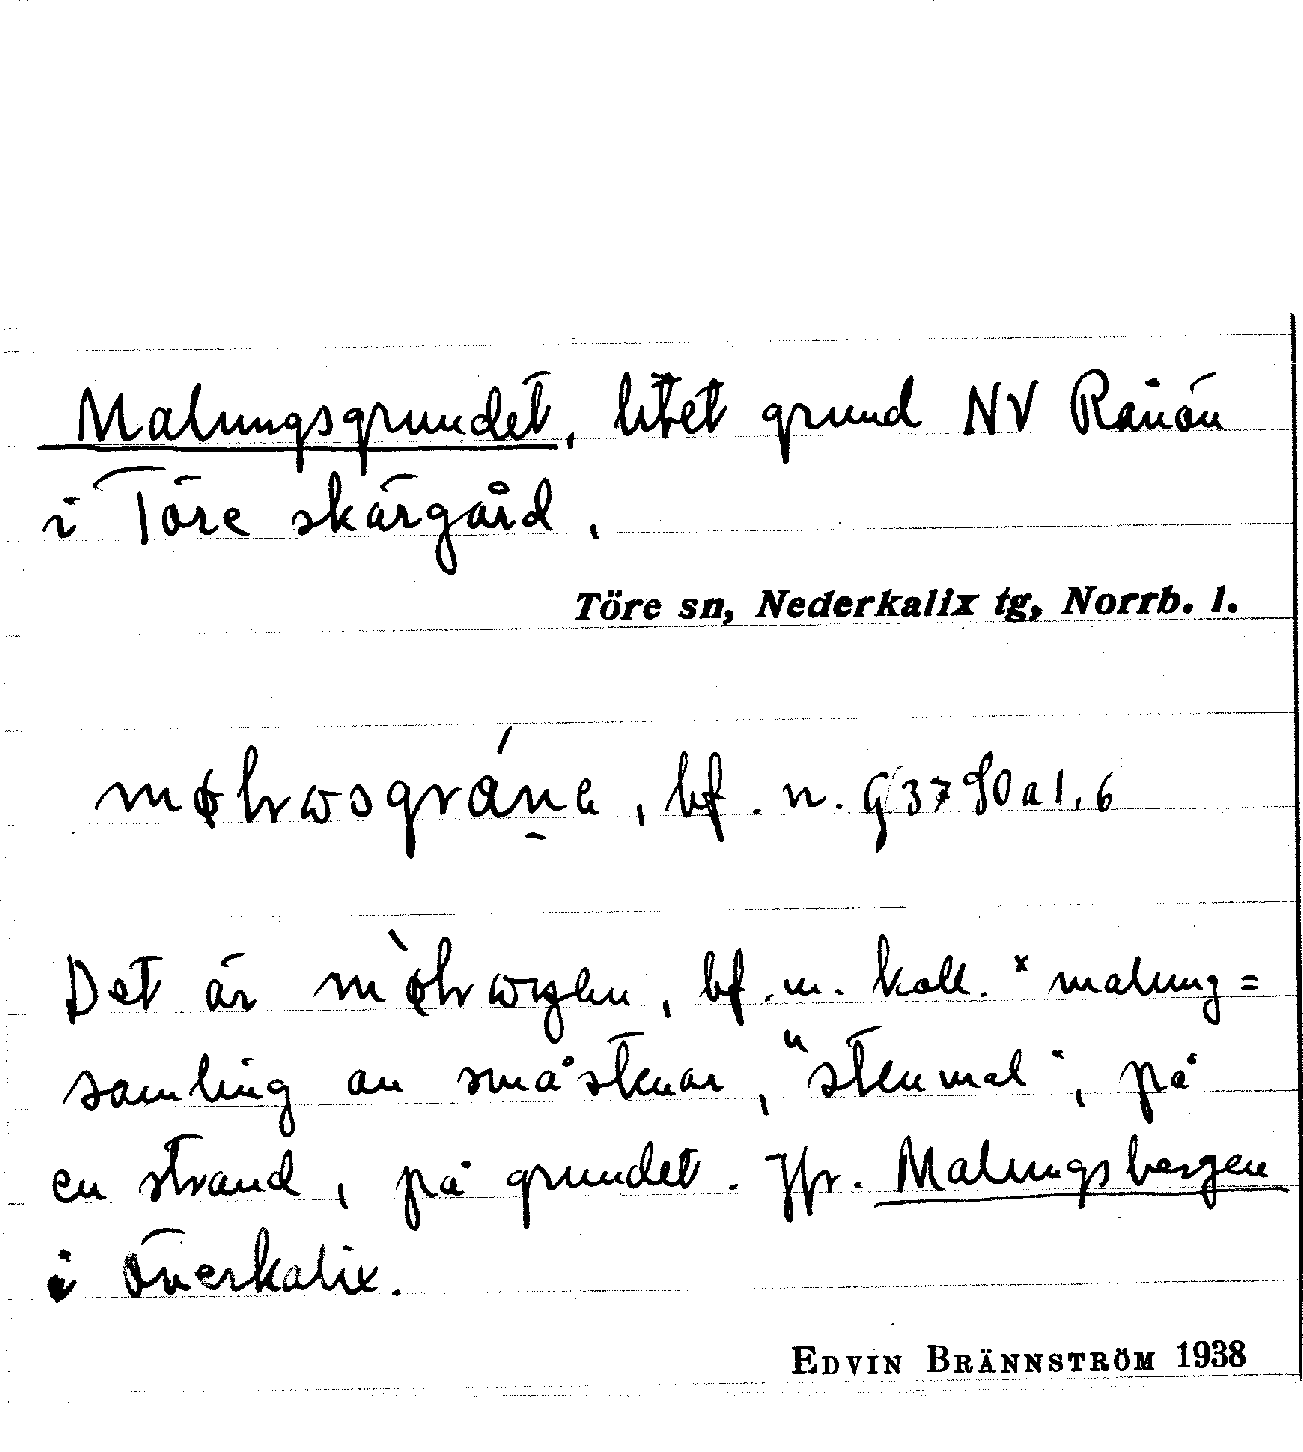 Malungsgrundet, litet grund NV Rånön
i Töre skärgård.
Töre sn, Nederkalix tg, Norrb. l.
bf. n.
Det är bf. m. koll. *malung=
samling av småstenar, "stenmal", på
en strand, på grundet. Jfr. Malungsbergen
i Överkalix.
EDVIN BRÄNNSTRÖM 1938